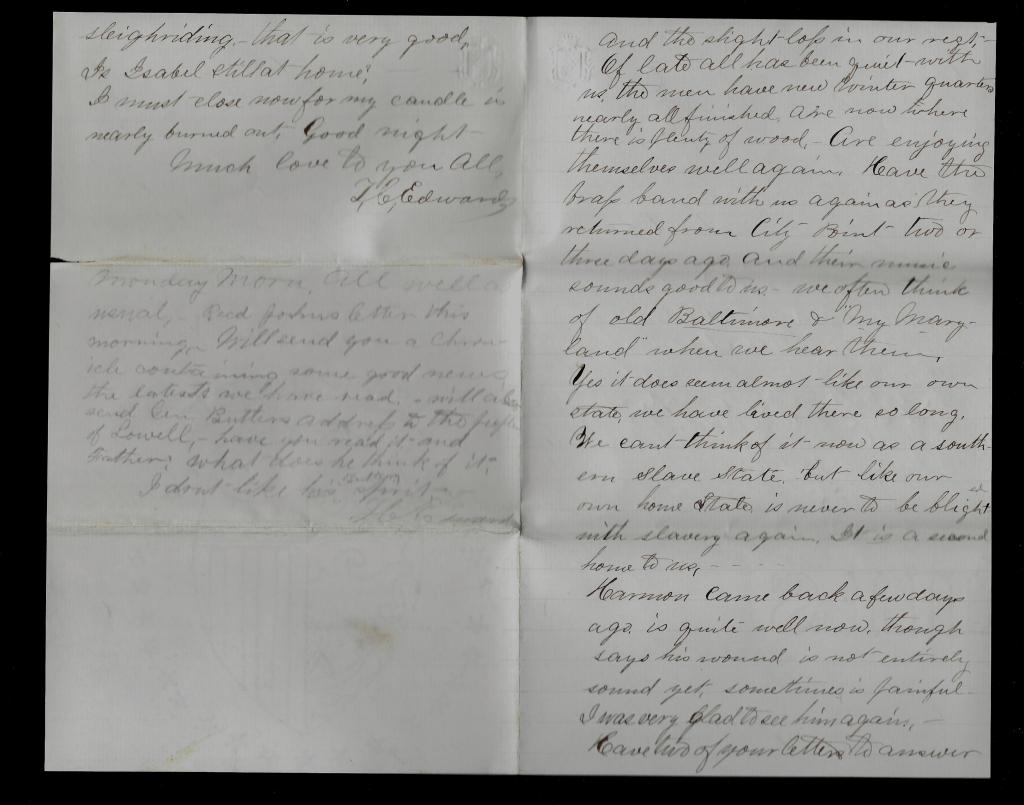 sleighriding - that is very good,
Is Isabel still at home?
I must close now for my candle is
nearly burned out, Good night -
Much love to you all,
Edwards
Monday Morn, All well as
usual, - Recd Johns letter this
morning, Will send you a Chron-
icle containing some good news
the latest we have read, - will also
send Gen Butlers address to the people
of Lowell, - have you read it and
Father? what does he think of it?
I dont like his spirit -
Edwards
And the slight loss in our regt, -
Of late all has been quiet with
us, the men have new winter quarters
nearly all finished, are now where
there is plenty of wood, - Are enjoying
themselves well again. Have the
brass band with us again as they
returned from City Point two or
three days ago, And their music
sounds good to us - we often think
of old Baltimore & "My Mary-
land" when we hear them,
Yes it does seem almost like our own
state, we have lived there so long.
We cant think of it now as a south-
ern Slave State, but like our
own home State is never to be blighted
with slavery again. It is a second
home to us, - - - -
Harmon came back a few days
ago, is quite well now, though
says his wound is not entirely
sound yet, sometimes is painful -
I was very glad to see him again, -
Have two of your letters to answer